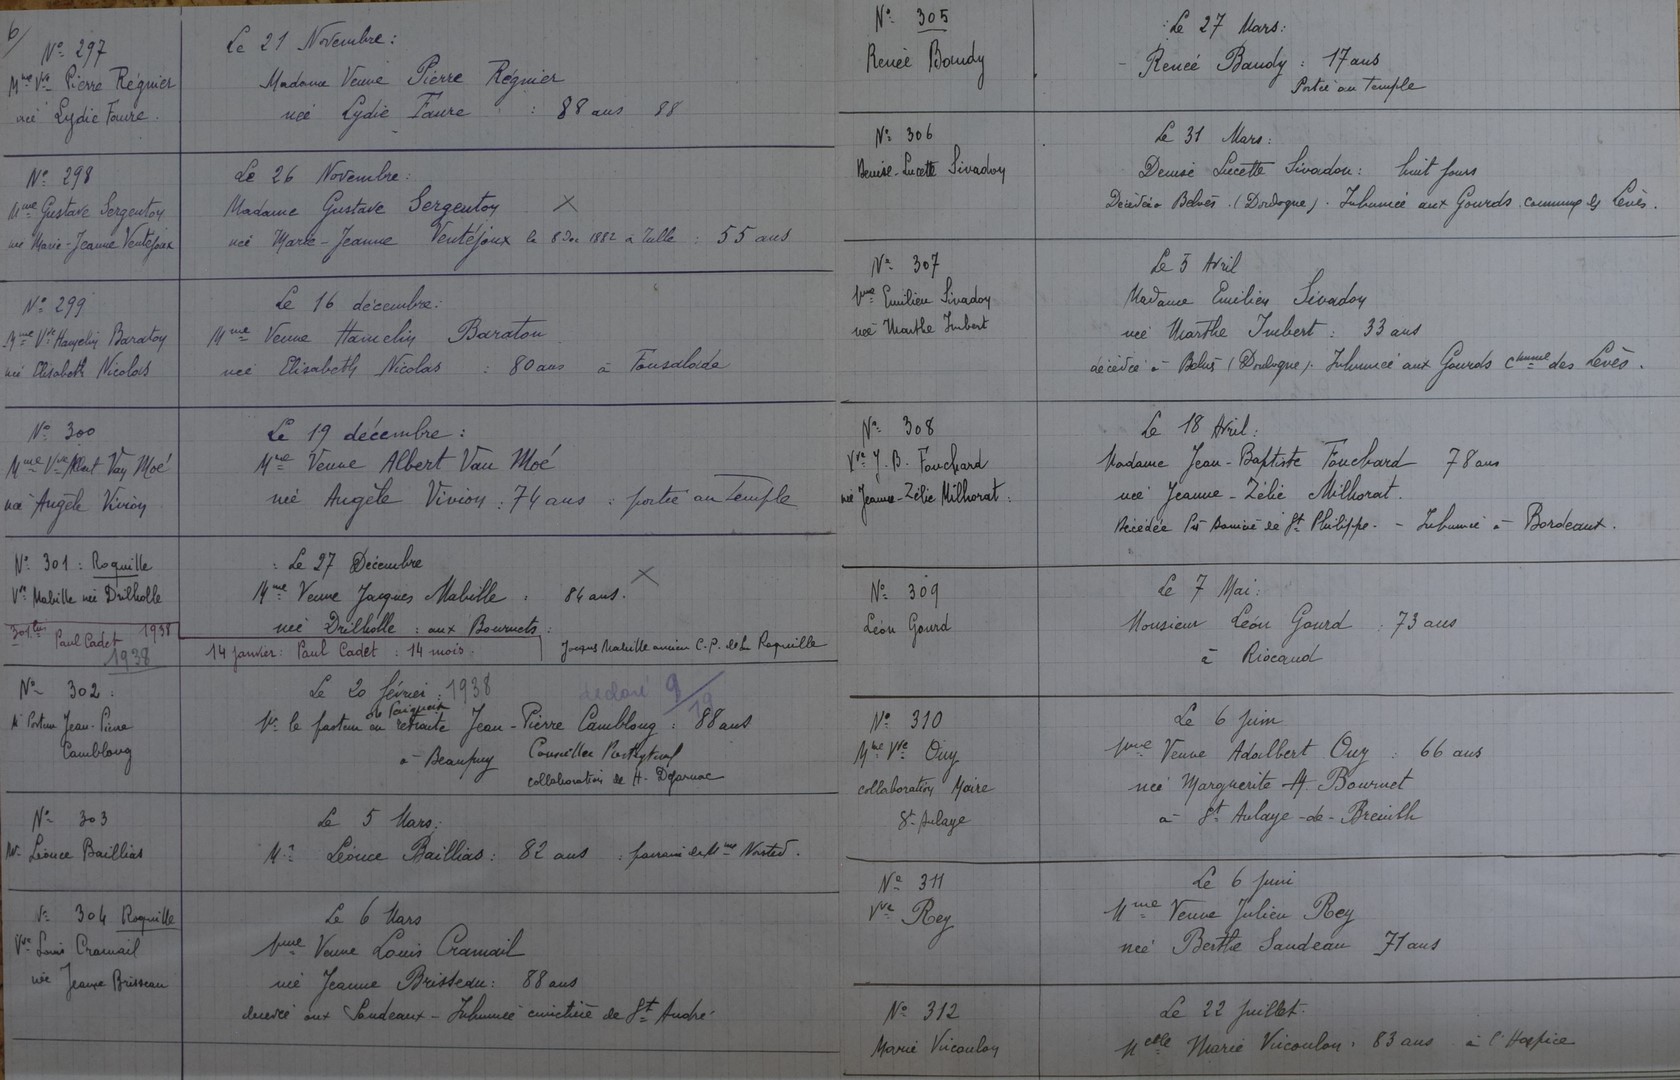 6/
N° 297
Mme Vve Pierre Régnier
née Lydie Faure.
Le 21 Novembre :
Madame Veuve Pierre Régnier
née Lydie Faure : 88 ans 88
N° 298
Mme Gustave Sergentoy
née Marie-Jeanne Ventéjoux
Le 26 Novembre :
Madame Gustave Sergentoy X
née Marie-Jeanne Ventéjoux le 8 Dec 1882 à Tulle : 55 ans
N° 299
Mme Vve Hamelin Baraton
née Elisabeth Nicolas
Le 16 décembre :
Mme Veuve Hamelin Baraton
née Elisabeth Nicolas : 80 ans à Fonsalade
N° 300
Mme Vve Albert Van Moé
née Angèle Vivion
Le 19 décembre :
Mme Veuve Albert Van Moé
née Angèle Vivion : 74 ans : portée au Temple
N° 301 : Roquille
Vve Mabille née Drilholle
: Le 27 Décembre
Mme Veuve Jacques Mabille : 84 ans. X
née Drilholle : aux Bournets :
Jacques Mabille ancien C.P. de La Roquille
301 ter Paul Cadet 1938
1938
14 janvier : Paul Cadet : 14 mois.
N° 302 :
Mr Pasteur Jean-Pierre
Camblong
Le 20 février : 1938
déclaré 9/19
Mr le pasteur en retraite Jean-Pierre Camblong : 88 ans
à Beaupuy Conseiller Presbytéral
collaboration de H. Déjarnac
N° 303
Mr Léonce Baillias
Le 5 Mars :
Mr Léonce Baillias : 82 ans : parrain de Mme Nosted.
N° 304 Roquille
Vve Louis Cramail
née Jeanne Brisseau
Le 6 Mars
Mme Veuve Louis Cramail
née Jeanne Brisseau : 88 ans
décédée aux Sandeaux - Inhumée cimetière de St André
N° 305
Renée Baudy
: Le 27 Mars :
- Renée Baudy : 17 ans
Portée au Temple
N° 306
Denise-Lucette Sivadon
Le 31 Mars :
Denise Lucette Sivadon : huit jours
Décédée à Belvès (Dordogne). Inhumée aux Gourds commune les Lèves.
N° 307
Mme Emilien Sivadon
née Marthe Imbert
Le 5 Avril
Madame Emilien Sivadon
née Marthe Imbert : 33 ans
décédée à Belvès (Dordogne). Inhumée aux Gourds Cmmune des Lèves.
N° 308
Vve J. B. Fouchard
née Jeanne-Zélie Milhorat :
Le 18 Avril :
Madame Jean-Baptiste Fouchard 78 ans
née Jeanne-Zélie Milhorat.
Décédée St Philippe. - Inhumée à Bordeaux.
N° 309
Léon Gourd
Le 7 Mai :
Monsieur Léon Gourd : 73 ans
à Riocaud
N° 310
Mme Vve Ouy
collaboration Maire
St-Aulaye
Le 6 juin
Mme Veuve Adalbert Ouy : 66 ans
née Marguerite Bournet
à St Aulaye-de-Breuilh
N° 311
Vve Rey
Le 6 juin
Mme Veuve Julien Rey
née Berthe Sandeau 71 ans
N° 312
Marie Vircoulon
Le 22 juillet :
Melle Marie Vircoulon : 83 ans à l'Hospice